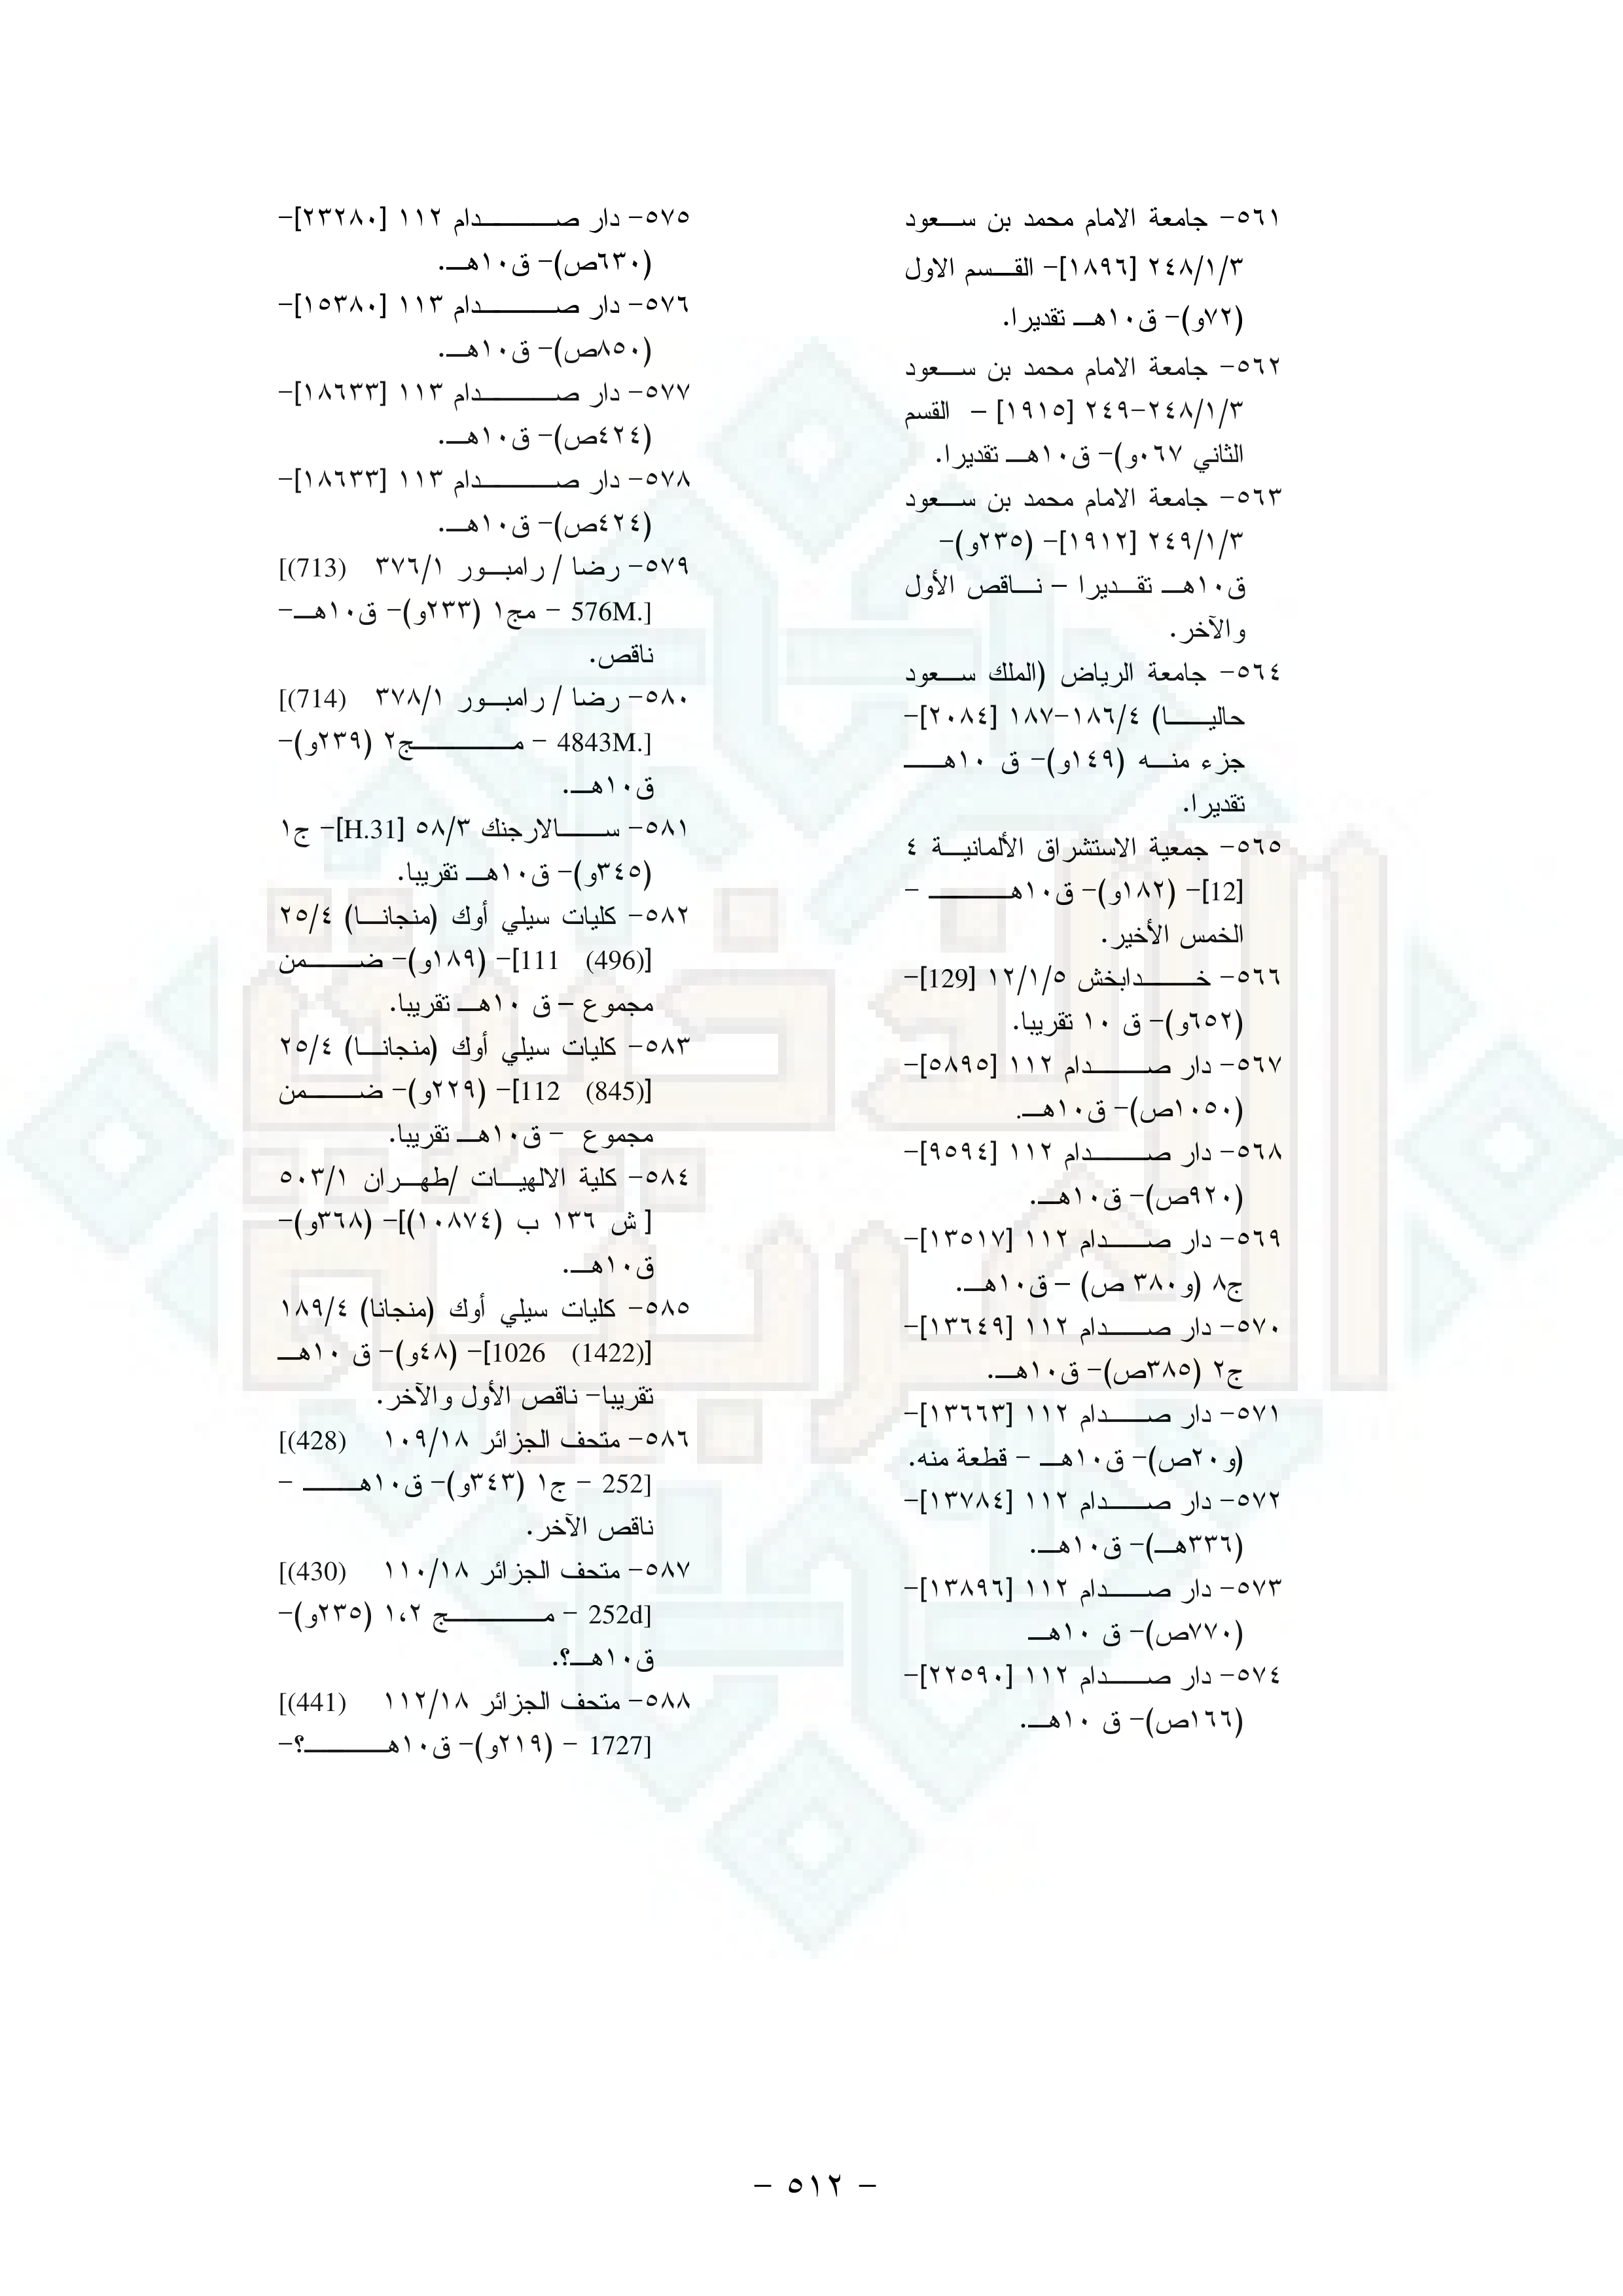 ٥٦١- جامعة الامام محمد بن سعود
٢٤٨/١/٣ [١٨٩٦]- القسم الاول
(٧٢و)- ق١٠هـ تقديرا.
٥٦٢- جامعة الامام محمد بن سعود
٢٤٨/١/٣-٢٤٩ [١٩١٥] – القسم
الثاني ٠٦٧و)- ق١٠هـ تقديرا.
٥٦٣- جامعة الامام محمد بن سعود
٢٤٩/١/٣ [١٩١٢]- (٢٣٥و)-
ق١٠هـ تقديرا – ناقص الأول
والآخر.
٥٦٤- جامعة الرياض (الملك سعود
حاليا) ١٨٦/٤-١٨٧ [٢٠٨٤]-
جزء منه (١٤٩و)- ق ١٠هـ
تقديرا.
٥٦٥- جمعية الاستشراق الألمانية ٤
[12]- (١٨٢و)- ق١٠هـ -
الخمس الأخير.
٥٦٦- خدابخش ١٢/١/٥ [129]-
(٦٥٢و)- ق ١٠ تقريبا.
٥٦٧- دار صدام ١١٢ [٥٨٩٥]-
(١٠٥٠ص)- ق١٠هـ.
٥٦٨- دار صدام ١١٢ [٩٥٩٤]-
(٩٢٠ص)- ق١٠هـ.
٥٦٩- دار صدام ١١٢ [١٣٥١٧]-
ج٨ (و٣٨٠ ص) – ق١٠هـ.
٥٧٠- دار صدام ١١٢ [١٣٦٤٩]-
ج٢ (٣٨٥ص)- ق١٠هـ.
٥٧١- دار صدام ١١٢ [١٣٦٦٣]-
(و٢٠ص)- ق١٠هـ - قطعة منه.
٥٧٢- دار صدام ١١٢ [١٣٧٨٤]-
(٣٣٦هـ)- ق١٠هـ.
٥٧٣- دار صدام ١١٢ [١٣٨٩٦]-
(٧٧٠ص)- ق ١٠هـ
٥٧٤- دار صدام ١١٢ [٢٢٥٩٠]-
(١٦٦ص)- ق ١٠هـ.
٥٧٥- دار صدام ١١٢ [٢٣٢٨٠]-
(٦٣٠ص)- ق١٠هـ.
٥٧٦- دار صدام ١١٣ [١٥٣٨٠]-
(٨٥٠ص)- ق١٠هـ.
٥٧٧- دار صدام ١١٣ [١٨٦٣٣]-
(٤٢٤ص)- ق١٠هـ.
٥٧٨- دار صدام ١١٣ [١٨٦٣٣]-
(٤٢٤ص)- ق١٠هـ.
٥٧٩- رضا / رامبور ٣٧٦/١ (713)]
[.576M - مج١ (٢٣٣و)- ق١٠هـ-
ناقص.
٥٨٠- رضا / رامبور ٣٧٨/١ (714)]
[.4843M - مج٢ (٢٣٩و)-
ق١٠هـ.
٥٨١- سالارجنك ٥٨/٣ [H.31]- ج١
(٣٤٥و)- ق١٠هـ تقريبا.
٥٨٢- كليات سيلي أوك (منجانا) ٢٥/٤
[(496) 111]- (١٨٩و)- ضمن
مجموع – ق ١٠هـ تقريبا.
٥٨٣- كليات سيلي أوك (منجانا) ٢٥/٤
[(845) 112]- (٢٢٩و)- ضمن
مجموع – ق١٠هـ تقريبا.
٥٨٤- كلية الالهيات /طهران ٥٠٣/١
[ ش ١٣٦ ب (١٠٨٧٤)]- (٣٦٨و)-
ق١٠هـ.
٥٨٥- كليات سيلي أوك (منجانا) ١٨٩/٤
[(1422) 1026]- (٤٨و)- ق ١٠هـ
تقريبا- ناقص الأول والآخر.
٥٨٦- متحف الجزائر ١٠٩/١٨ (428)]
[252 - ج١ (٣٤٣و)- ق١٠هـ -
ناقص الآخر.
٥٨٧- متحف الجزائر ١١٠/١٨ (430)]
[252d - مج ١،٢ (٢٣٥و)-
ق١٠هـ؟.
٥٨٨- متحف الجزائر ١١٢/١٨ (441)]
[1727 - (٢١٩و)- ق١٠هـ؟-
- ٥١٢ -